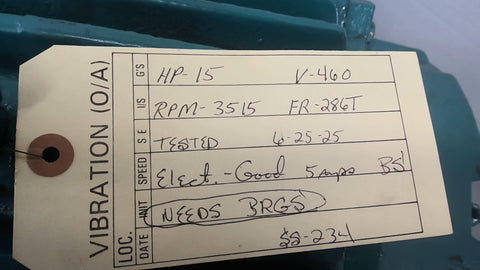 VIBRATION (O/A)
LOC.
DATE UNIT SPEED S E I/S G'S
HP-15 V-460
RPM-3515 FR-286T
TESTED 6-25-25
Elect.-Good 5amps BS
NEEDS BRGS